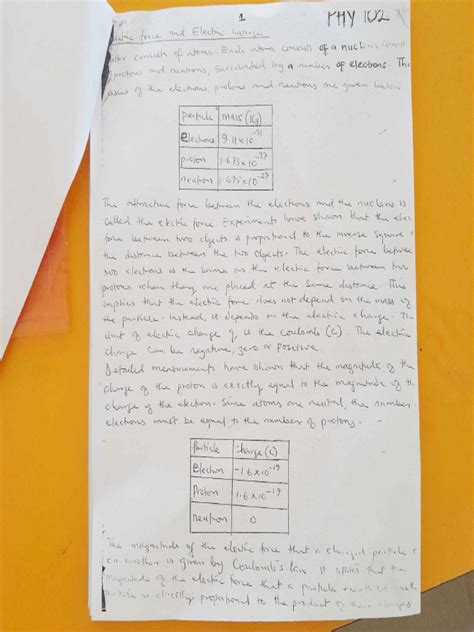 1
PHY 102
force and Electric charge
consists of atoms. Each atom consists of a
protons and neutrons, surrounded by a number of electrons. The
of the electrons, protons and neutrons are given below
particle mass (Kg)
Electrons 9.11 x 10^-31
proton 1.673 x 10^-27
neutron 1.675 x 10^-27
The attractive force between the electrons and the nucleus is
called the electric force. Experiments have shown that the
force between two objects is proportional to the inverse square
the distance between the two objects. The electric force between
two electrons is the same as the electric force between two
protons when they are placed at the same distance. This
implies that the electric force does not depend on the mass of
the particle. Instead, it depends on the electric charge. The
unit of electric charge is the Coulomb (C). The electric
charge can be negative, zero or positive.
Detailed measurements have shown that the magnitude of the
charge of the proton is exactly equal to the magnitude of the
charge of the electron. Since atoms are neutral, the number
electrons must be equal to the number of protons.
Particle Charge (C)
Electron -1.6 x 10^-19
Proton 1.6 x 10^-19
neutron 0
The magnitude of the electric force that a charged particle
on another is given by Coulomb's law. It states that the
magnitude of the electric force that a particle exerts on
particle is directly proportional to the product of